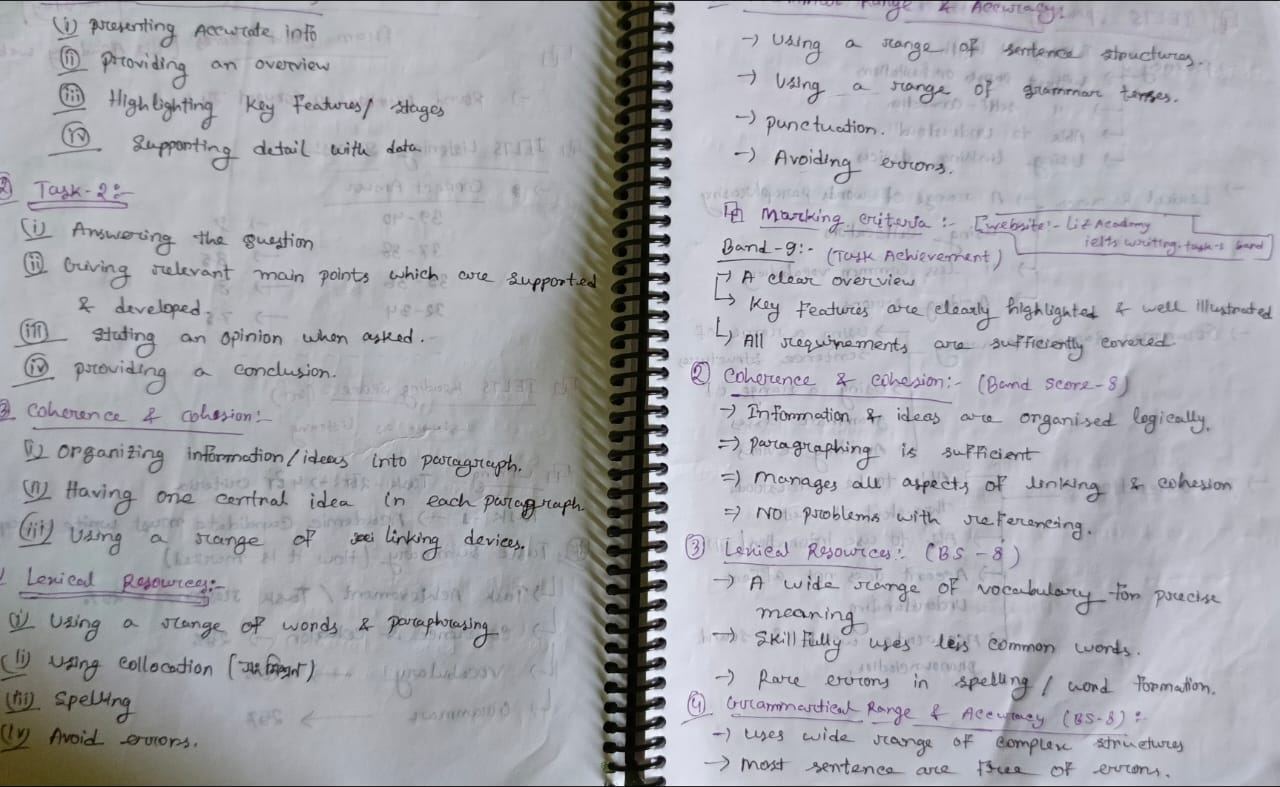 (i) presenting Accurate info
(ii) providing an overview
(iii) Highlighting key Features/ stages
(iv) Supporting detail with data
② Task-2:-
(i) Answering the question
(ii) Giving relevant main points which are supported
& developed.
(iii) Stating an opinion when asked.
(iv) providing a conclusion.
3 Coherence & cohesion:-
(i) Organizing information/ideas into paragraph.
(ii) Having one central idea in each paragraph.
(iii) Using a range of linking devices.
Lexical Resources:-
(i) Using a range of words & paraphrasing
(ii) Using collocation
(iii) Spelling
(iv) Avoid errors.
Range & Accuracy:
→ Using a range of sentence structures.
→ Using a range of grammar tenses.
→ punctuation.
→ Avoiding errors.
Marking criteria :- [website:- Liz Academy
ielts writing task-1 band
Band-9:- (Task Achievement)
→ A clear overview
→ Key Features are clearly highlighted & well illustrated
→ All requirements are sufficiently covered
② Coherence & cohesion:- (Band score-8)
→ Information & ideas are organised logically.
⇒ paragraphing is sufficient
⇒ Manages all aspects of linking & cohesion
⇒ No problems with referencing.
③ Lexical Resources:- (BS-8)
→ A wide range of vocabulary for precise
meaning
→ Skillfully uses less common words.
→ Rare errors in spelling / word formation.
④ Grammartical Range & Accuracy (BS-8) :-
→ Uses wide range of complex structures
→ most sentence are free of errors.